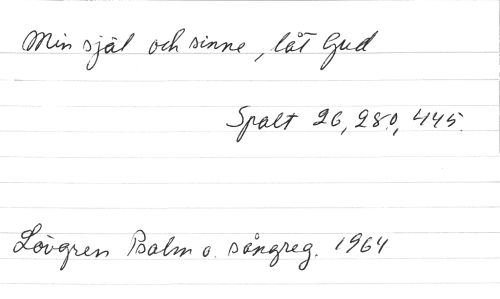 Min själ och sinne, låt Gud
Spalt 26, 280, 445.
Lövgren Psalm o. sångreg. 1964